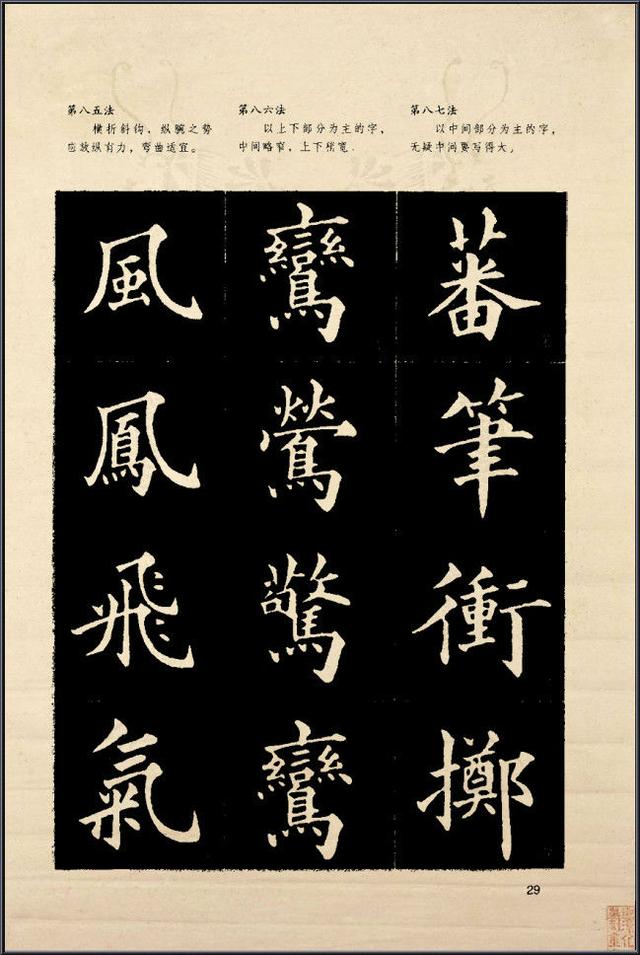 第八五法
横折斜钩，纵腕之势
应放纵有力，弯曲适宜。
第八六法
以上下部分为主的字，
中间略窄，上下稍宽。
第八七法
以中间部分为主的字，
无疑中间要写得大。
風
鳳
飛
氣
鸞
鶯
驚
鸞
蕃
筆
衝
擲
29